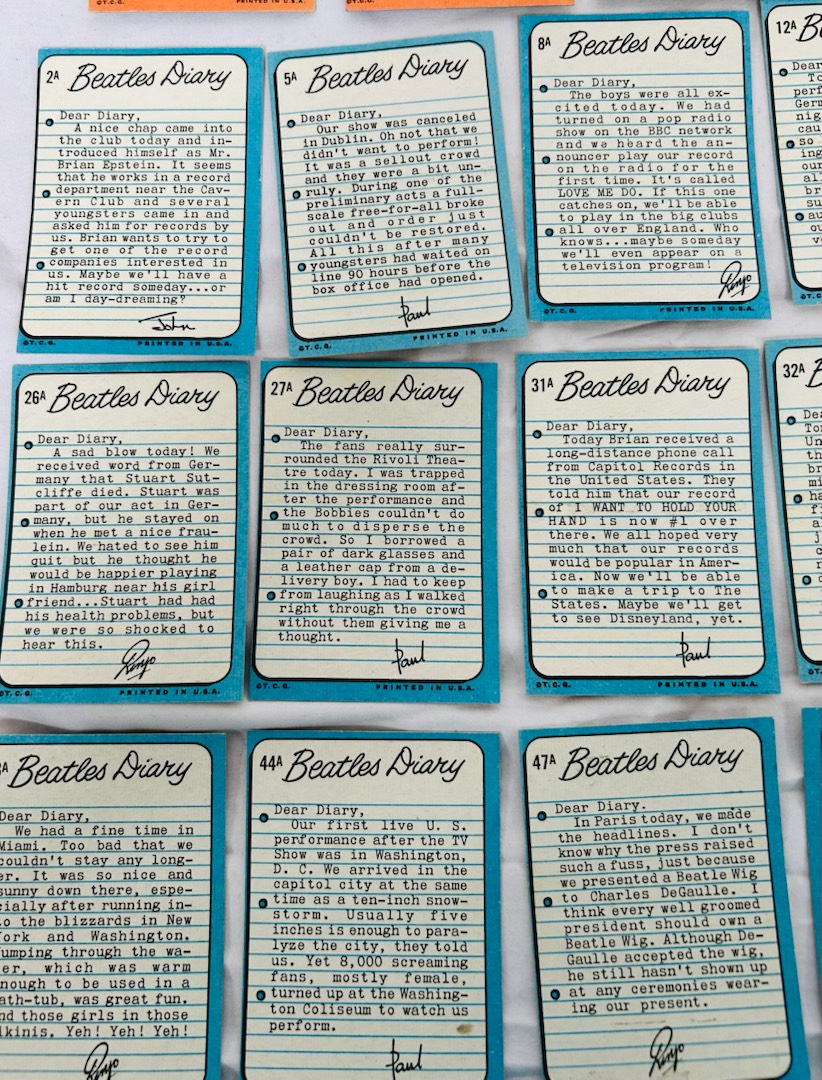 ©T.C.G.
PRINTED IN U.S.A.
©T.C.G.
2A Beatles Diary
Dear Diary,
A nice chap came into
the club today and in-
troduced himself as Mr.
Brian Epstein. It seems
that he works in a record
department near the Cav-
ern Club and several
youngsters came in and
asked him for records by
us. Brian wants to try to
get one of the record
companies interested in
us. Maybe we'll have a
hit record someday...or
am I day-dreaming?
John
©T.C.G.
PRINTED IN U.S.A.
5A Beatles Diary
Dear Diary,
Our show was canceled
in Dublin. Oh not that we
didn't want to perform!
It was a sellout crowd
and they were a bit un-
ruly. During one of the
preliminary acts a full-
scale free-for-all broke
out and order just
couldn't be restored.
All this after many
youngsters had waited on
line 90 hours before the
box office had opened.
Paul
©T.C.G.
PRINTED IN U.S.A.
8A Beatles Diary
Dear Diary,
The boys were all ex-
cited today. We had
turned on a pop radio
show on the BBC network
and we heard the an-
nouncer play our record
on the radio for the
first time. It's called
LOVE ME DO. If this one
catches on, we'll be able
to play in the big clubs
all over England. Who
knows...maybe someday
we'll even appear on a
television program!
Ringo
©T.C.G.
PRINTED IN U.S.A.
12A
Dear
26A Beatles Diary
Dear Diary,
A sad blow today! We
received word from Ger-
many that Stuart Sut-
cliffe died. Stuart was
part of our act in Ger-
many, but he stayed on
when he met a nice frau-
lein. We hated to see him
quit but he thought he
would be happier playing
in Hamburg near his girl
friend...Stuart had had
his health problems, but
we were so shocked to
hear this.
Ringo
©T.C.G.
PRINTED IN U.S.A.
27A Beatles Diary
Dear Diary,
The fans really sur-
rounded the Rivoli Thea-
tre today. I was trapped
in the dressing room af-
ter the performance and
the Bobbies couldn't do
much to disperse the
crowd. So I borrowed a
pair of dark glasses and
a leather cap from a de-
livery boy. I had to keep
from laughing as I walked
right through the crowd
without them giving me a
thought.
Paul
©T.C.G.
PRINTED IN U.S.A.
31A Beatles Diary
Dear Diary,
Today Brian received a
long-distance phone call
from Capitol Records in
the United States. They
told him that our record
of I WANT TO HOLD YOUR
HAND is now #1 over
there. We all hoped very
much that our records
would be popular in Amer-
ica. Now we'll be able
to make a trip to The
States. Maybe we'll get
to see Disneyland, yet.
Paul
©T.C.G.
PRINTED IN U.S.A.
32A
A Beatles Diary
Dear Diary,
We had a fine time in
Miami. Too bad that we
couldn't stay any long-
er. It was so nice and
sunny down there, espe-
cially after running in-
to the blizzards in New
York and Washington.
Jumping through the wa-
ter, which was warm
enough to be used in a
bath-tub, was great fun.
And those girls in those
bikinis. Yeh! Yeh! Yeh!
Ringo
44A Beatles Diary
Dear Diary,
Our first live U. S.
performance after the TV
Show was in Washington,
D. C. We arrived in the
capitol city at the same
time as a ten-inch snow-
storm. Usually five
inches is enough to para-
lyze the city, they told
us. Yet 8,000 screaming
fans, mostly female,
turned up at the Washing-
ton Coliseum to watch us
perform.
Paul
47A Beatles Diary
Dear Diary.
In Paris today, we made
the headlines. I don't
know why the press raised
such a fuss, just because
we presented a Beatle Wig
to Charles DeGaulle. I
think every well groomed
president should own a
Beatle Wig. Although De-
Gaulle accepted the wig,
he still hasn't shown up
at any ceremonies wear-
ing our present.
Ringo